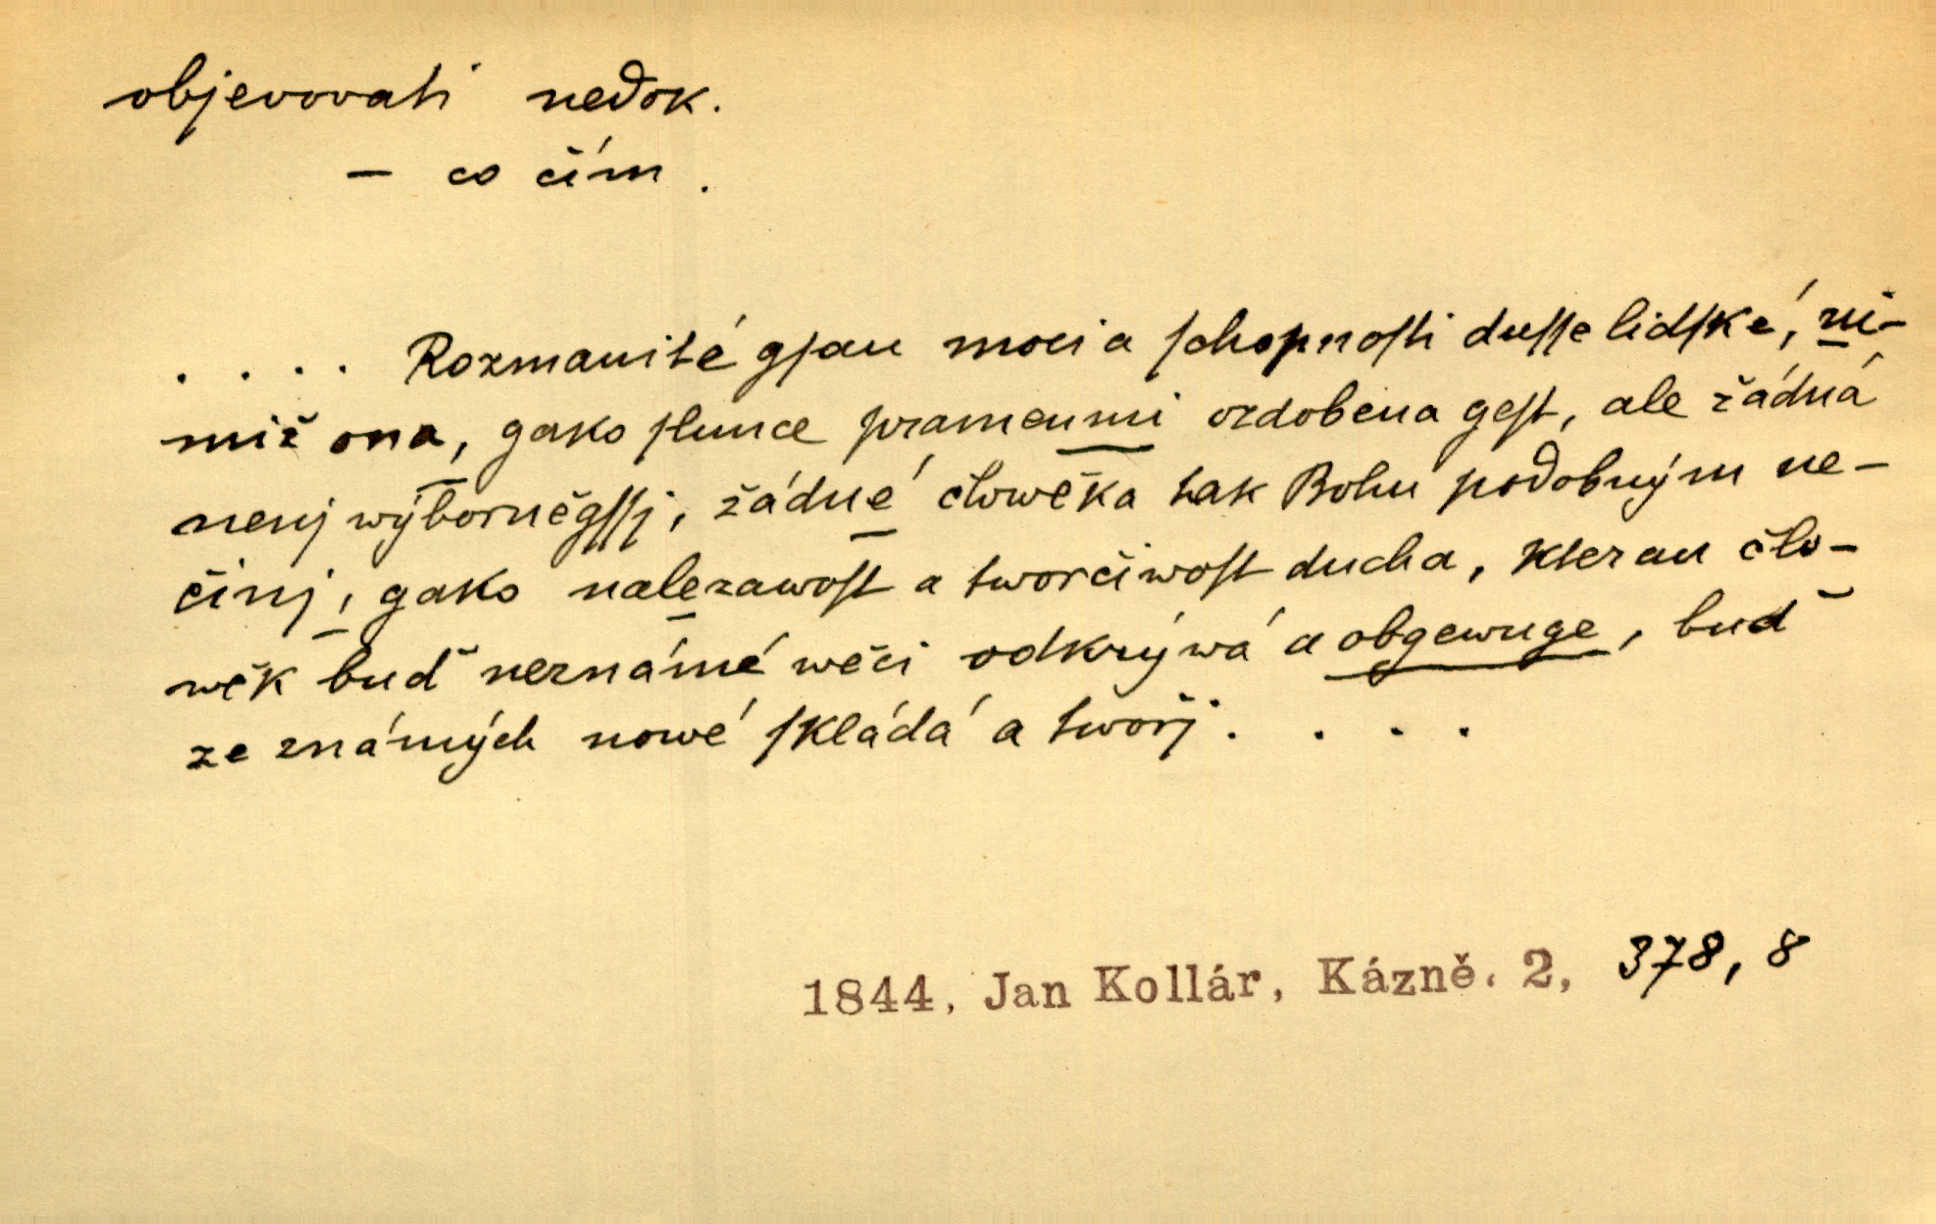 objevovati nedok.
– co čím.
.... Rozmanité gſau moci a ſchopnoſti duſſe lidſké, ni-
miž ona, gako ſlunce pramenmi ozdobena geſt, ale žádná
nenj wýborněgſſj, žádné člowěka tak Bohu podobným ne-
činj, gako nalezawoſt a tworčiwoſt ducha, kterau člo-
wěk buď neznámé wěci odkrýwá a obgewuge, buď
ze známých nowé ſkládá a twořj....
1844, Jan Kollár, Kázně. 2, 378, 8